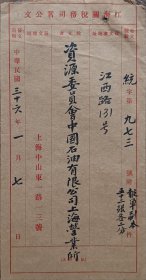 江海關稅務司署公文
統字第九七三號
附
報單副本
江西路131号
資源委員會中國石油有限公司上海營業所
上海中山東一路十三號
中華民國三十六年一月七日